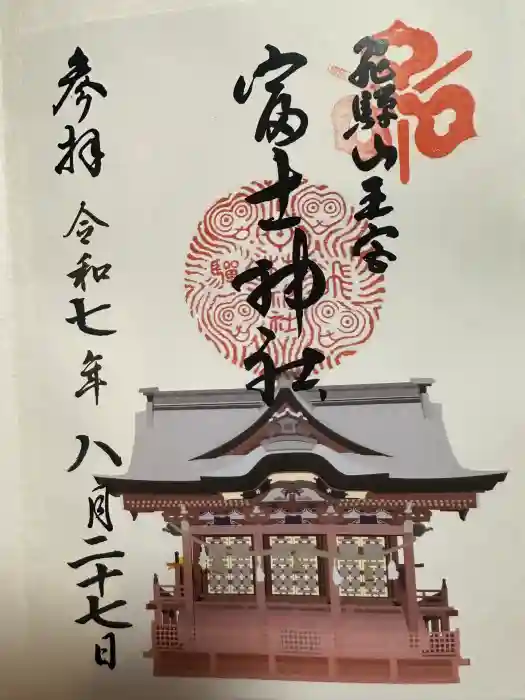 飛騨山王宮
富士神社
参拝
令和七年
八月二十七日